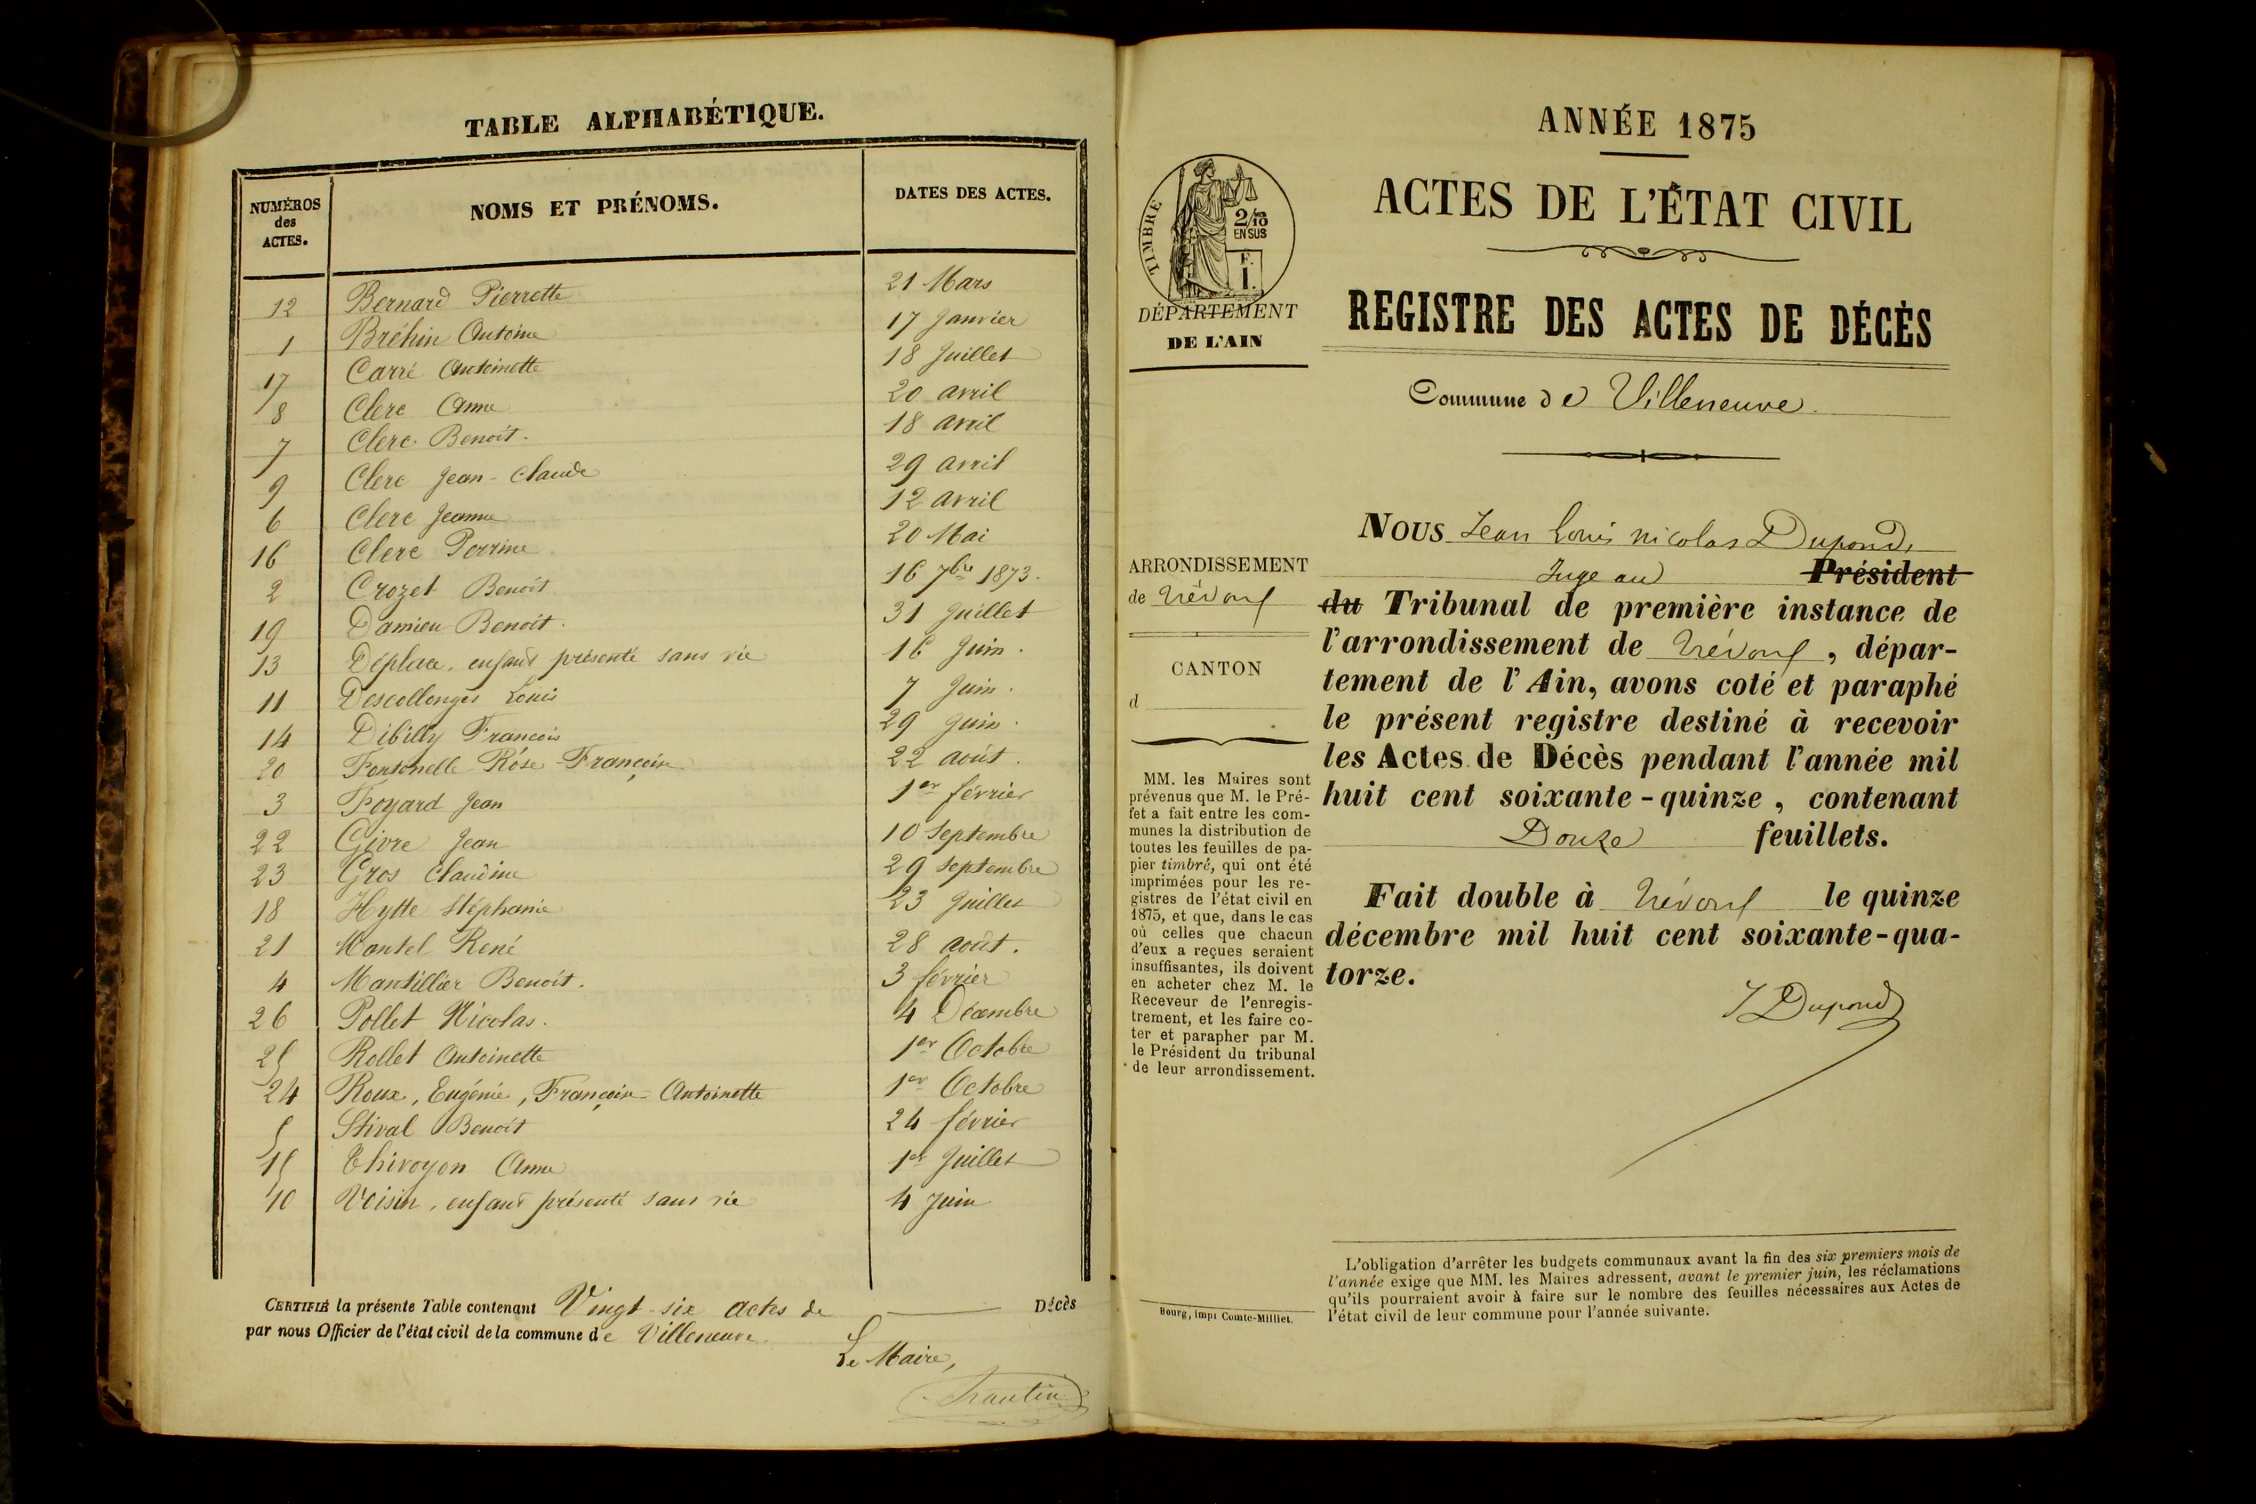 TABLE ALPHABÉTIQUE.
NUMÉROS des ACTES. NOMS ET PRÉNOMS. DATES DES ACTES.
12 Bernard Pierrette 21 Mars
1 Bréhin Antoine 17 Janvier
17 Carré Antoinette 18 Juillet
8 Clerc Anne 20 avril
7 Clerc Benoit. 18 avril
9 Clerc Jean-Claude 29 avril
6 Clerc Jeanne 12 avril
16 Clerc Perrine 20 Mai
2 Crozet Benoit 16 7bre 1873.
19 Damien Benoit. 31 Juillet
13 Déplace, enfant présenté sans vie 16 Juin.
11 Descollonges Louis 7 Juin.
14 Dibilly Francois 29 Juin.
20 Fontenelle Rose-Françoise 22 août.
3 Foyard Jean 1er février
22 Givre Jean 10 Septembre
23 Gros Claudine 29 Septembre
18 Hytte Stéphanie 23 Juillet
21 Mantel René 28 août.
4 Mantillier Benoit. 3 février
26 Pollet Nicolas. 4 Décembre
25 Rollet Antoinette 1er Octobre
24 Roux, Eugénie, Françoise Antoinette 1er Octobre
5 Stival Benoit 24 février
15 Thivoyon Anne 1er Juillet
10 Voisin, enfant présenté sans vie 4 Juin
CERTIFIÉ la présente Table contenant Vingt-six actes de Décès
par nous Officier de l'état civil de la commune de Villeneuve.
Le Maire,
ANNÉE 1875
ACTES DE L'ÉTAT CIVIL
TIMBRE
2/10
EN SUS
F.
1.
DÉPARTEMENT
DE L'AIN
REGISTRE DES ACTES DE DÉCÈS
Commune de Villeneuve.
ARRONDISSEMENT
de Trévoux
CANTON
d
MM. les Maires sont
prévenus que M. le Pré-
fet a fait entre les com-
munes la distribution de
toutes les feuilles de pa-
pier timbré, qui ont été
imprimées pour les re-
gistres de l'état civil en
1875, et que, dans le cas
où celles que chacun
d'eux a reçues seraient
insuffisantes, ils doivent
en acheter chez M. le
Receveur de l'enregis-
trement, et les faire co-
ter et parapher par M.
le Président du tribunal
de leur arrondissement.
NOUS Jean Louis Nicolas Dupond,
Juge au Président
du Tribunal de première instance de
l'arrondissement de Trévoux, dépar-
tement de l'Ain, avons coté et paraphé
le présent registre destiné à recevoir
les Actes de Décès pendant l'année mil
huit cent soixante-quinze, contenant
Douze feuillets.
Fait double à Trévoux le quinze
décembre mil huit cent soixante-qua-
torze.
J Dupond
L'obligation d'arrêter les budgets communaux avant la fin des six premiers mois de
l'année exige que MM. les Maires adressent, avant le premier juin, les réclamations
qu'ils pourraient avoir à faire sur le nombre des feuilles nécessaires aux Actes de
l'état civil de leur commune pour l'année suivante.
Bourg, impr Comte-Milliet.